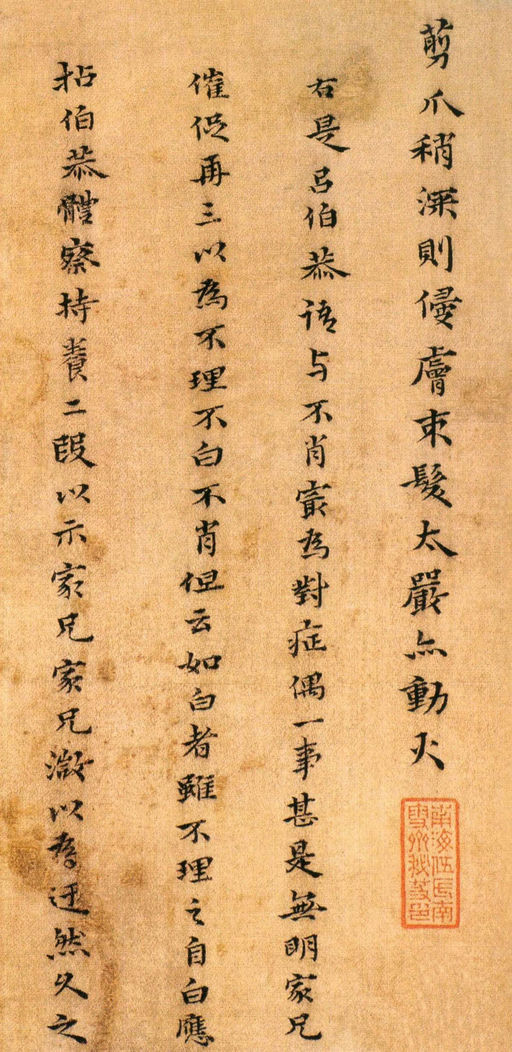 剪爪稍深則侵膚束髮太嚴亦動火
右是呂伯恭語与不肖㝡為對症偶一事甚是無明家兄
催促再三以為不理不白不肖但云如白者雖不理之自白應
拈伯恭體察持養二段以示家兄家兄激以為迂然久之